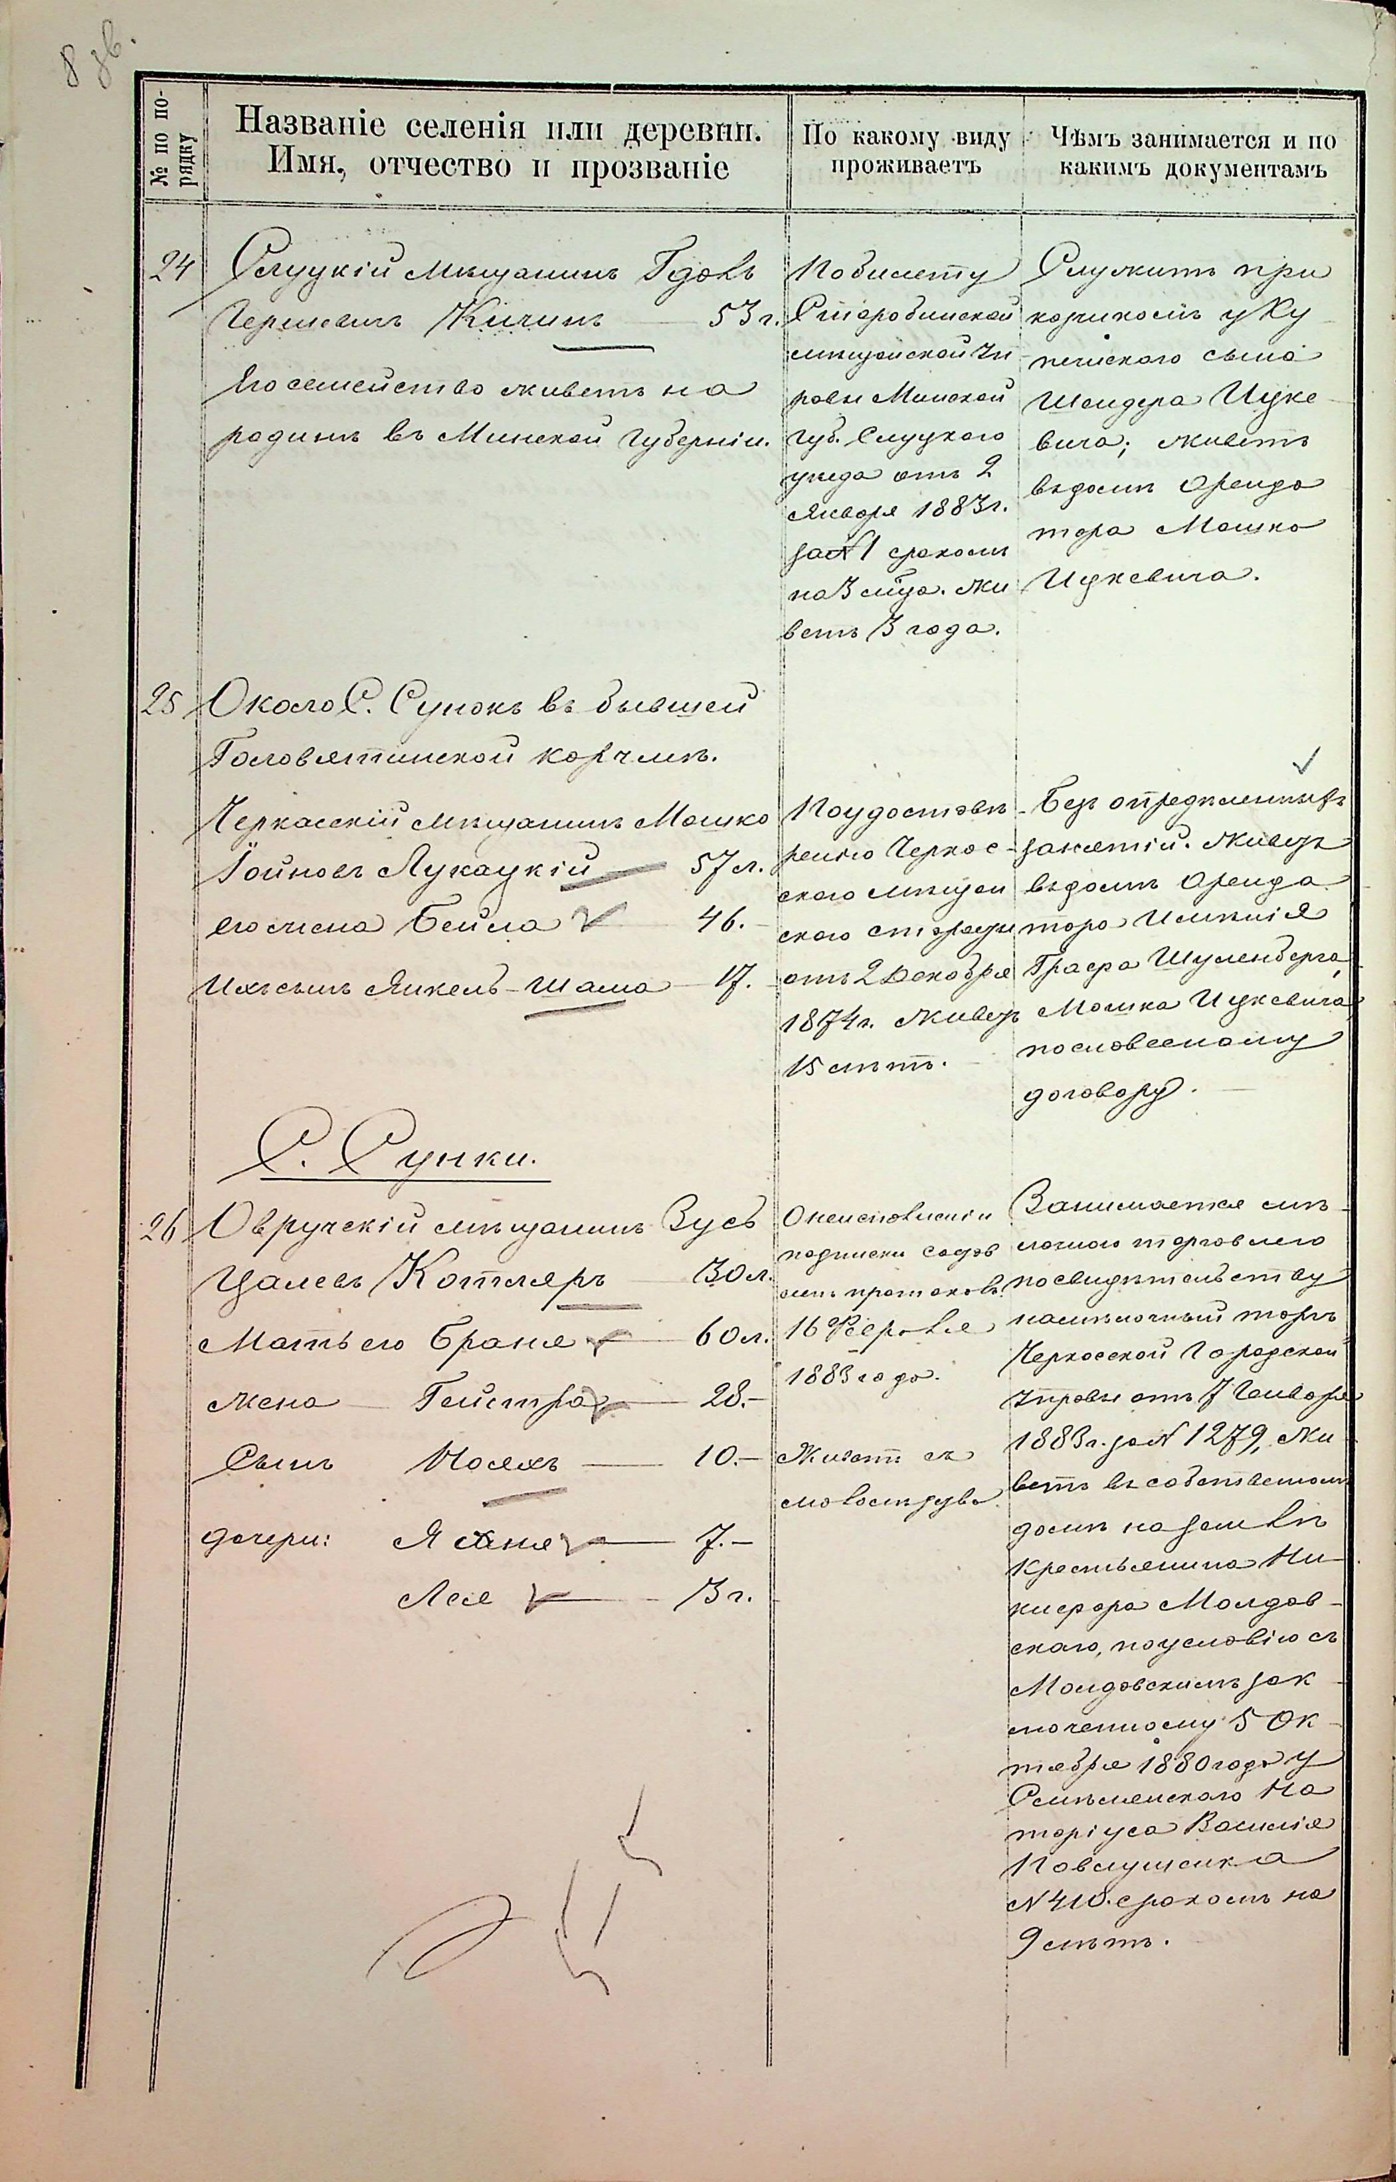 8 зв.
№ по по-
рядку
Названіе селенія или деревни.
Имя, отчество и прозваніе
По какому виду
проживаетъ
Чѣмъ занимается и по
какимъ документамъ
24
Слуцкій мѣщанинъ Гдаль
Гершевичъ Кичинъ — 53 г.
Его семейство живетъ на
родинѣ въ Минской губерніи.
По билету
Старобинской
мѣщанской Уп
равы Минской
губ. Слуцкого
уѣзда отъ 2
Января 1883 г.
за № 1 срокомъ
на 3 м-ца. Жи
ветъ 3 года.
Служитъ при
у Ку
печеского сына
Шендера Ицке
вича; живетъ
въ домѣ Аренда
тора Мошко
Ицкевича.
25
Около С. Сунокъ въ бывшей
Головятинской корчмѣ.
Черкасскій мѣщанинъ Мошко
Іойновъ Лукацкій — 57 л.
его жена Бейла — 46. —
Ихъ сынъ Янкель-Шама — 17. —
По удостовѣ
ренію Черкас-
ского мѣщан
ского старосты
отъ 2 Декабря
1874 г. Живетъ
15 лѣтъ.
Безъ опредѣленныхъ
занятій. Живетъ
въ домѣ Аренда
тора Имѣнія
Графа Шуленберга,
Мошка Ицкевича,
по словесному
договору.
С. Сунки.
26
Овручскій мѣщанинъ Зусь
Цалевъ Котляръ — 30 л.
Мать его Браня — 60 л.
жена Гейстра — 28. —
Сынъ Ноахъ — 10. —
дочери: Яхня — 7. —
Лея — 3 г.
О неимѣніи
подписки
протоколъ
16 Февраля
1883 года.
Живетъ съ
Занимается мѣ
лочною торговлею
по свидѣтельству
на мѣлочный торгъ
Черкасской Городской
Управы отъ 7 Января
1883 г. за № 1279, жи
ветъ въ собственномъ
домѣ на землѣ
Крестьянина Ни
кифора Молдов-
скаго, по условію съ
Молдовскимъ зак
люченному 5 Ок-
тября 1880 года у
Смѣлянского На
таріуса Василія
Павлушенка
№ 410. срокомъ на
9 лѣтъ.